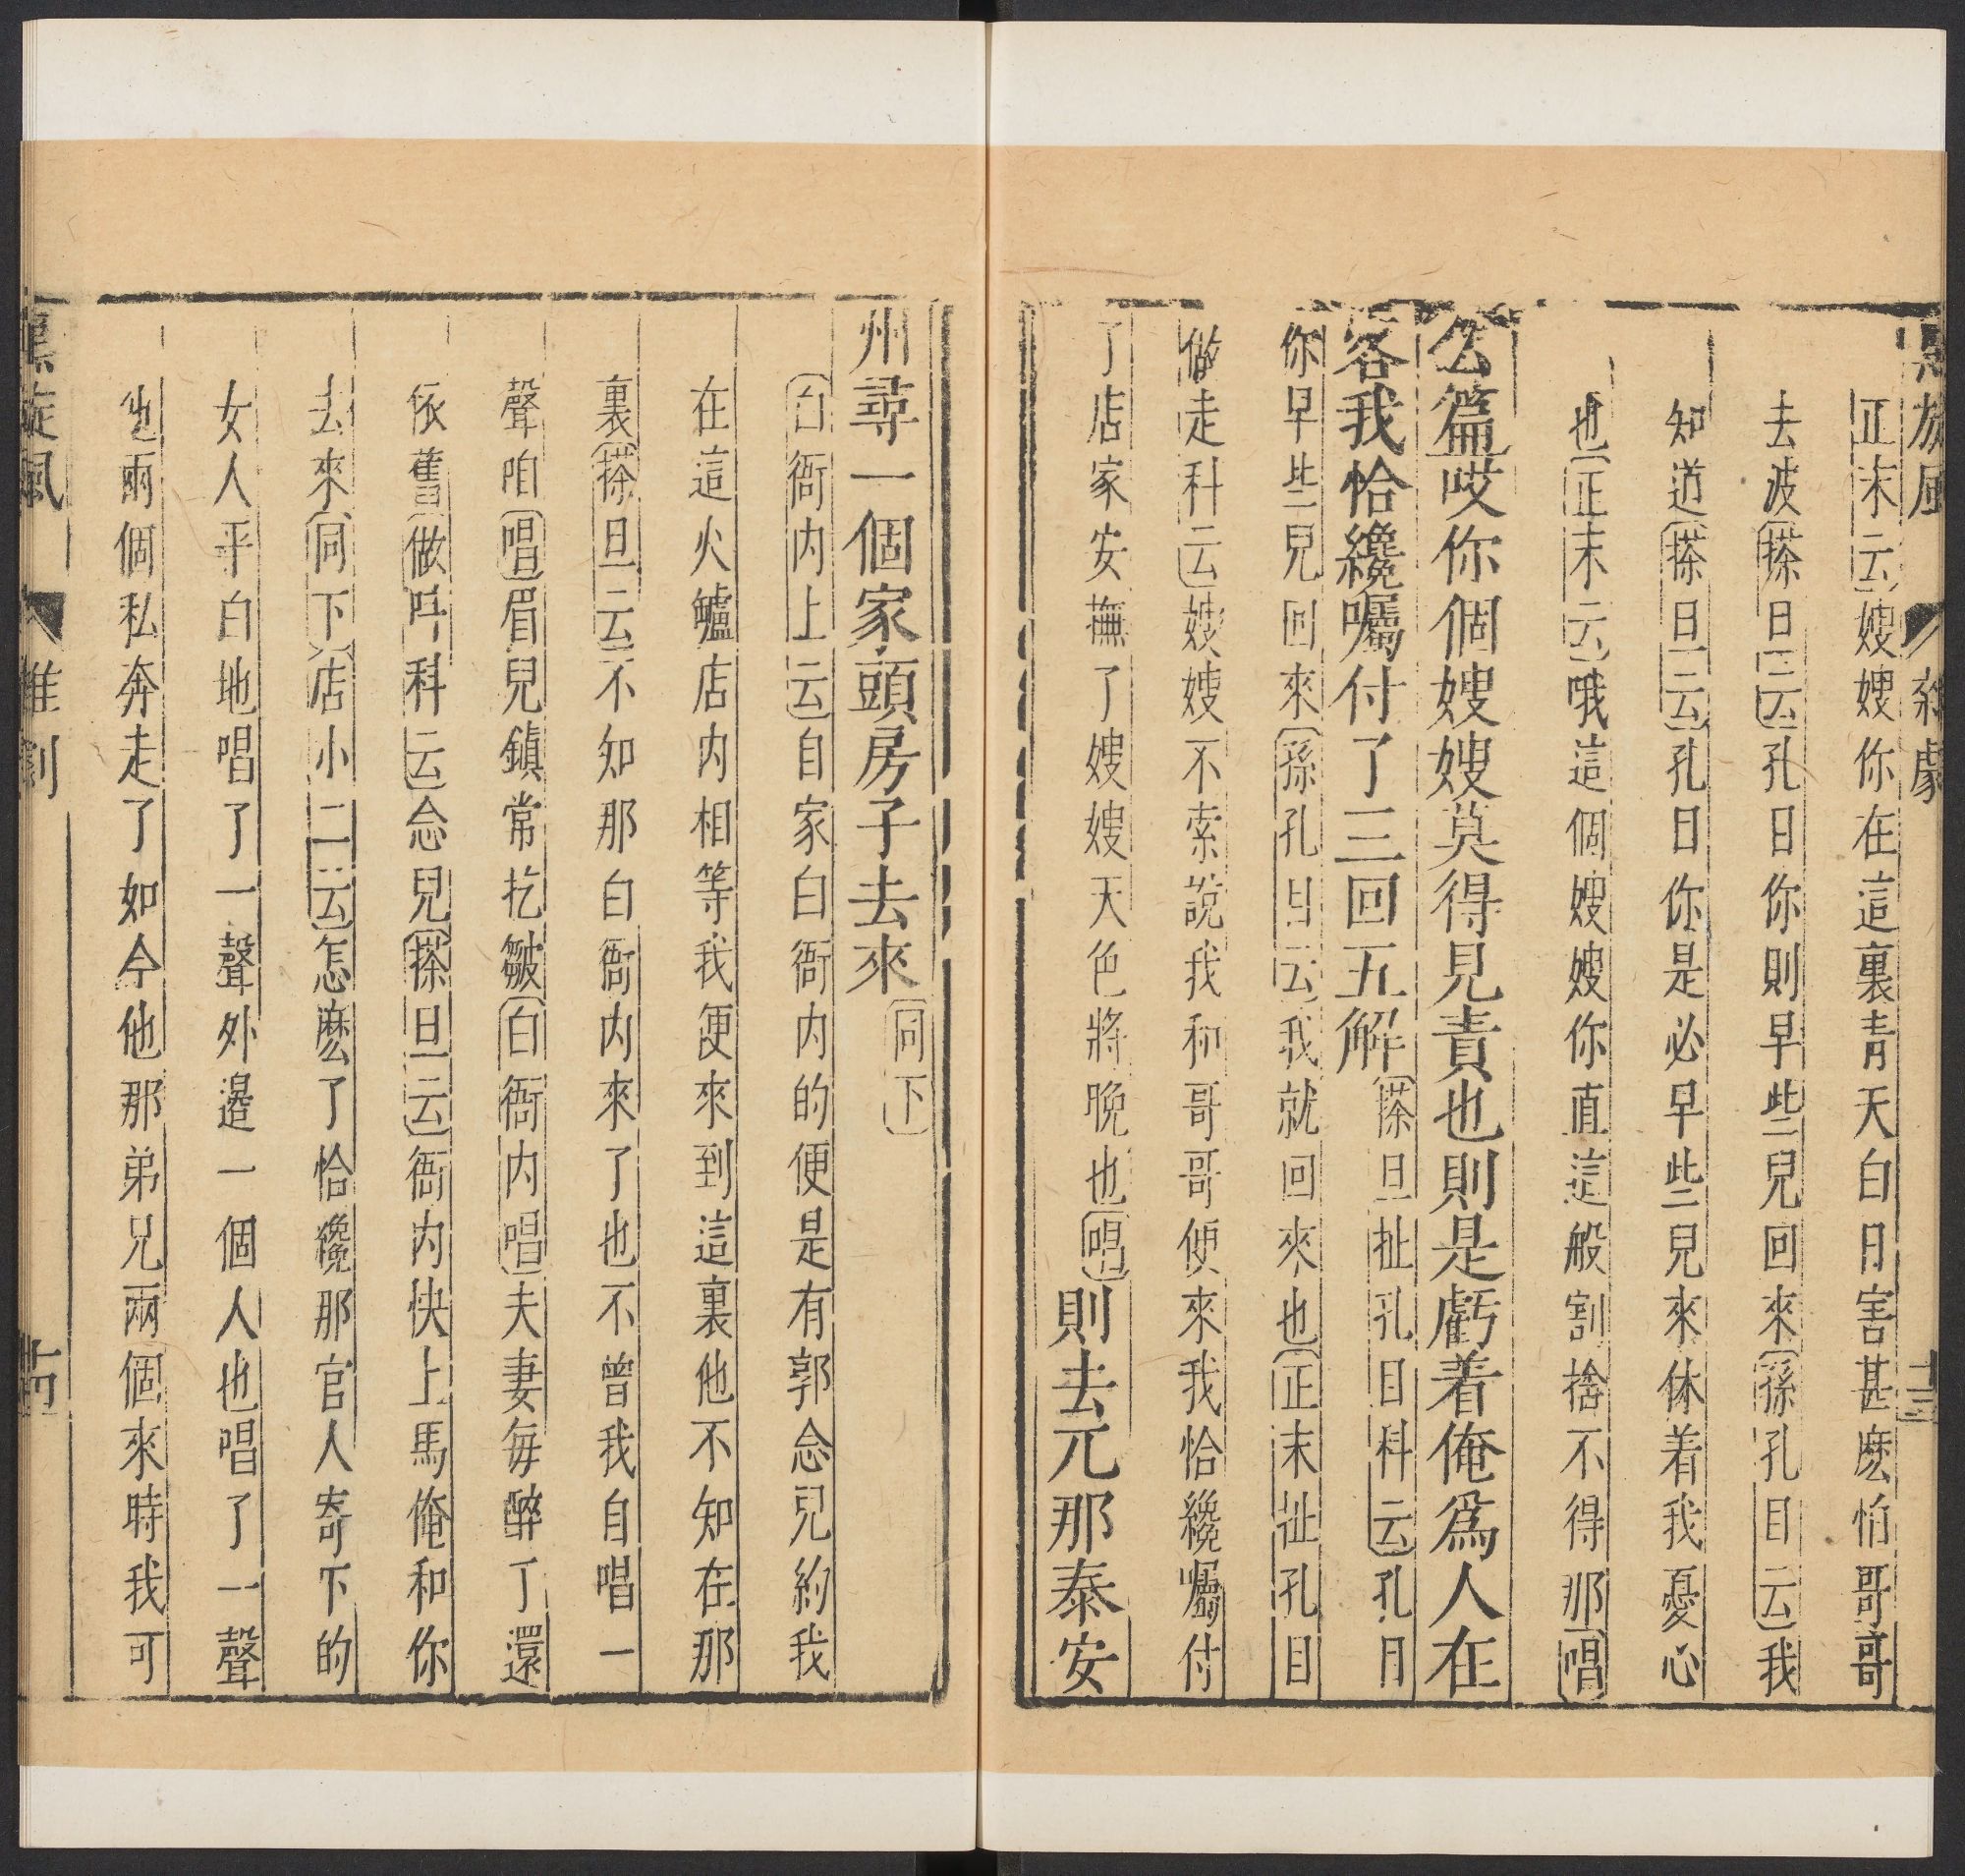 黑旋風 雜劇 十三
正末云嫂嫂你在這裏青天白日害甚麽怕哥哥
去波搽旦云孔目你則早些兒回來孫孔目云我
知道搽旦云孔目你是必早些兒來休着我憂心
也正末云哦這個嫂嫂你直這般割捨不得那唱
公篇哎你個嫂嫂莫得見責也則是虧着俺爲人在
客我恰纔囑付了三回五解搽旦扯孔目科云孔目
你早些兒回來孫孔目云我就回來也正末扯孔目
做走科云嫂嫂不索說我和哥哥便來我恰纔囑付
了店家安撫了嫂嫂天色將晚也唱則去兀那泰安
州尋一個家頭房子去來同下
白衙内上云自家白衙内的便是有郭念兒約我
在這火罏店内相等我便來到這裏他不知在那
裏搽旦云不知那白衙内來了也不曾我自唱一
聲咱唱眉兒鎮常扢皺白衙内唱夫妻每醉了還
依舊做叫科云念兒搽旦云衙内快上馬俺和你
去來同下店小二云怎麽了恰纔那官人寄下的
女人平白地唱了一聲外邊一個人也唱了一聲
他兩個私奔走了如今他那弟兄兩個來時我可
黑旋風 雜劇 十四